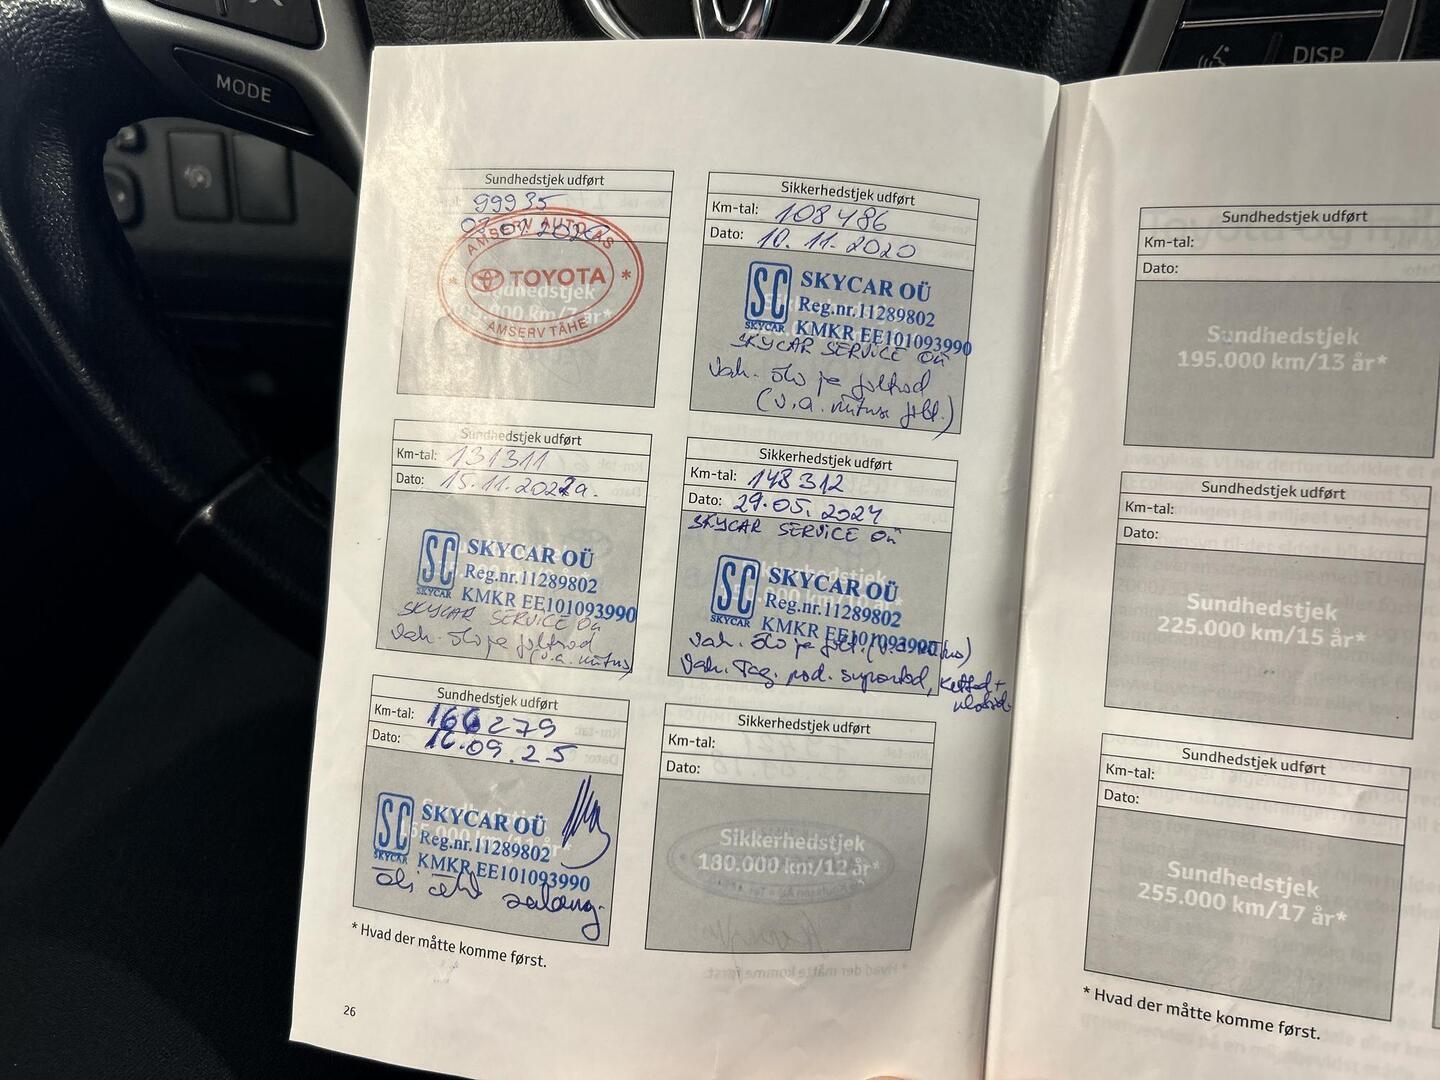 MODE
DISP
Sundhedstjek udført
99935
AMSERV AUTO AS
TOYOTA
AMSERV TÄHE
Sikkerhedstjek udført
Km-tal: 108486
Dato: 10.11.2020
SC SKYCAR OÜ
Reg.nr.11289802
SKYCAR KMKR EE101093990
SKYCAR SERVICE OÜ
Vah. õli ja filtrid
(v.a. kütus filt.)
Sundhedstjek udført
Km-tal: 131311
Dato: 15.11.2022a.
SC SKYCAR OÜ
Reg.nr.11289802
SKYCAR KMKR EE101093990
SKYCAR SERVICE OÜ
Vah. õli ja filtrid
(v.a. kütus)
Sikkerhedstjek udført
Km-tal: 148312
Dato: 29.05.2024
SKYCAR SERVICE OÜ
SC SKYCAR OÜ
Reg.nr.11289802
SKYCAR KMKR EE101093990
Vah. õli ja filt. (v.a. kütus)
Vah. Tag. pid. suportid, kettad +
klotsid
Sundhedstjek udført
Km-tal: 166279
Dato: 16.09.25
SC SKYCAR OÜ
Reg.nr.11289802
SKYCAR KMKR EE101093990
Sikkerhedstjek udført
Km-tal:
Dato:
Sikkerhedstjek
180.000 km/12 år*
* Hvad der måtte komme først.
26
Sundhedstjek udført
Km-tal:
Dato:
Sundhedstjek
195.000 km/13 år*
Sundhedstjek udført
Km-tal:
Dato:
Sundhedstjek
225.000 km/15 år*
Sundhedstjek udført
Km-tal:
Dato:
Sundhedstjek
255.000 km/17 år*
* Hvad der måtte komme først.